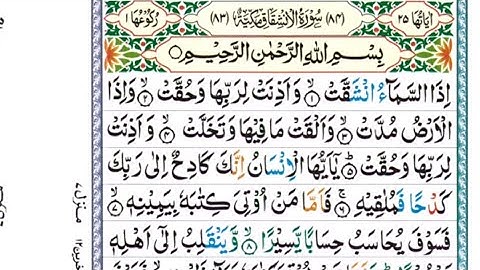 اٰيَاتُهَا ٢٥ (٨٤) سُوْرَةُ الْاِنْشِقَاقِ مَكِّيَّةٌ (٨٣) رُكُوْعُهَا ١
بِسْمِ اللهِ الرَّحْمٰنِ الرَّحِيْمِ
اِذَا السَّمَآءُ انْشَقَّتْ ۙ﴿۱﴾ وَ اَذِنَتْ لِرَبِّهَا وَحُقَّتْ ۙ﴿۲﴾ وَاِذَا
الْاَرْضُ مُدَّتْ ۙ﴿۳﴾ وَاَلْقَتْ مَا فِيْهَا وَتَخَلَّتْ ۙ﴿۴﴾ وَ اَذِنَتْ
لِرَبِّهَا وَحُقَّتْ ؕ﴿۵﴾ يٰۤاَيُّهَا الْاِنْسَانُ اِنَّكَ كَادِحٌ اِلٰى رَبِّكَ
كَدْحًا فَمُلٰقِيْهِ ۚ﴿۶﴾ فَاَمَّا مَنْ اُوْتِىَ كِتٰبَهٗ بِيَمِيْنِهٖ ۙ﴿۷﴾
فَسَوْفَ يُحَاسَبُ حِسَابًا يَّسِيْرًا ۙ﴿۸﴾ وَّيَنْقَلِبُ اِلٰٓى اَهْلِهٖ
منزل ٧